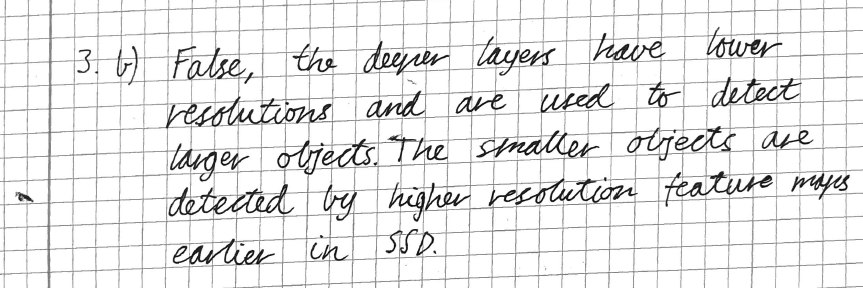 3. b) False, the deeper layers have lower
resolutions and are used to detect
larger objects. The smaller objects are
detected by higher resolution feature maps
earlier in SSD.